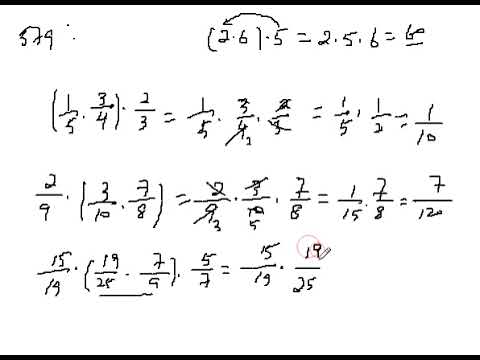 579: (2·6)·5 = 2·5·6 = 60
(1/5 · 3/4) · 2/3 = 1/5 · 3/4 2 · 2/3 = 1/5 · 1/2 = 1/10
2/9 · (3/10 · 7/8) = 2/9 3 · 3/10 5 · 7/8 = 1/15 · 7/8 = 7/120
15/19 · (19/25 · 7/9) · 5/7 = 15/19 · 19/25